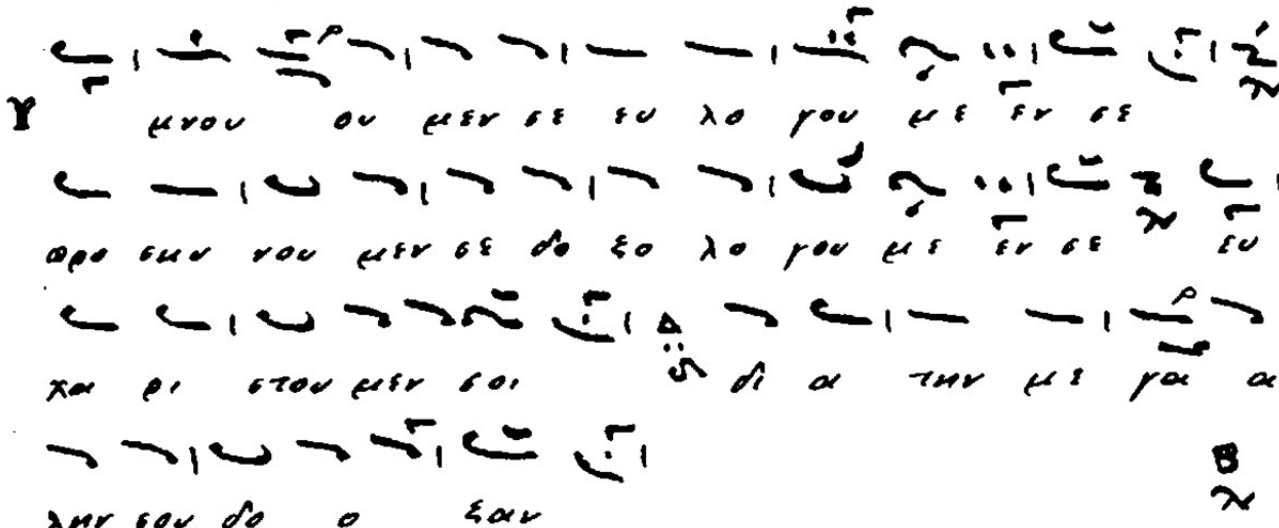 Υ μνου ου μεν σε ευ λο γου με εν σε
προ σκυ νου μεν σε δο ξο λο γου με εν σε ευ
χα ρι στου μεν σοι δι α την με γα α
λην σου δο ο ξαν